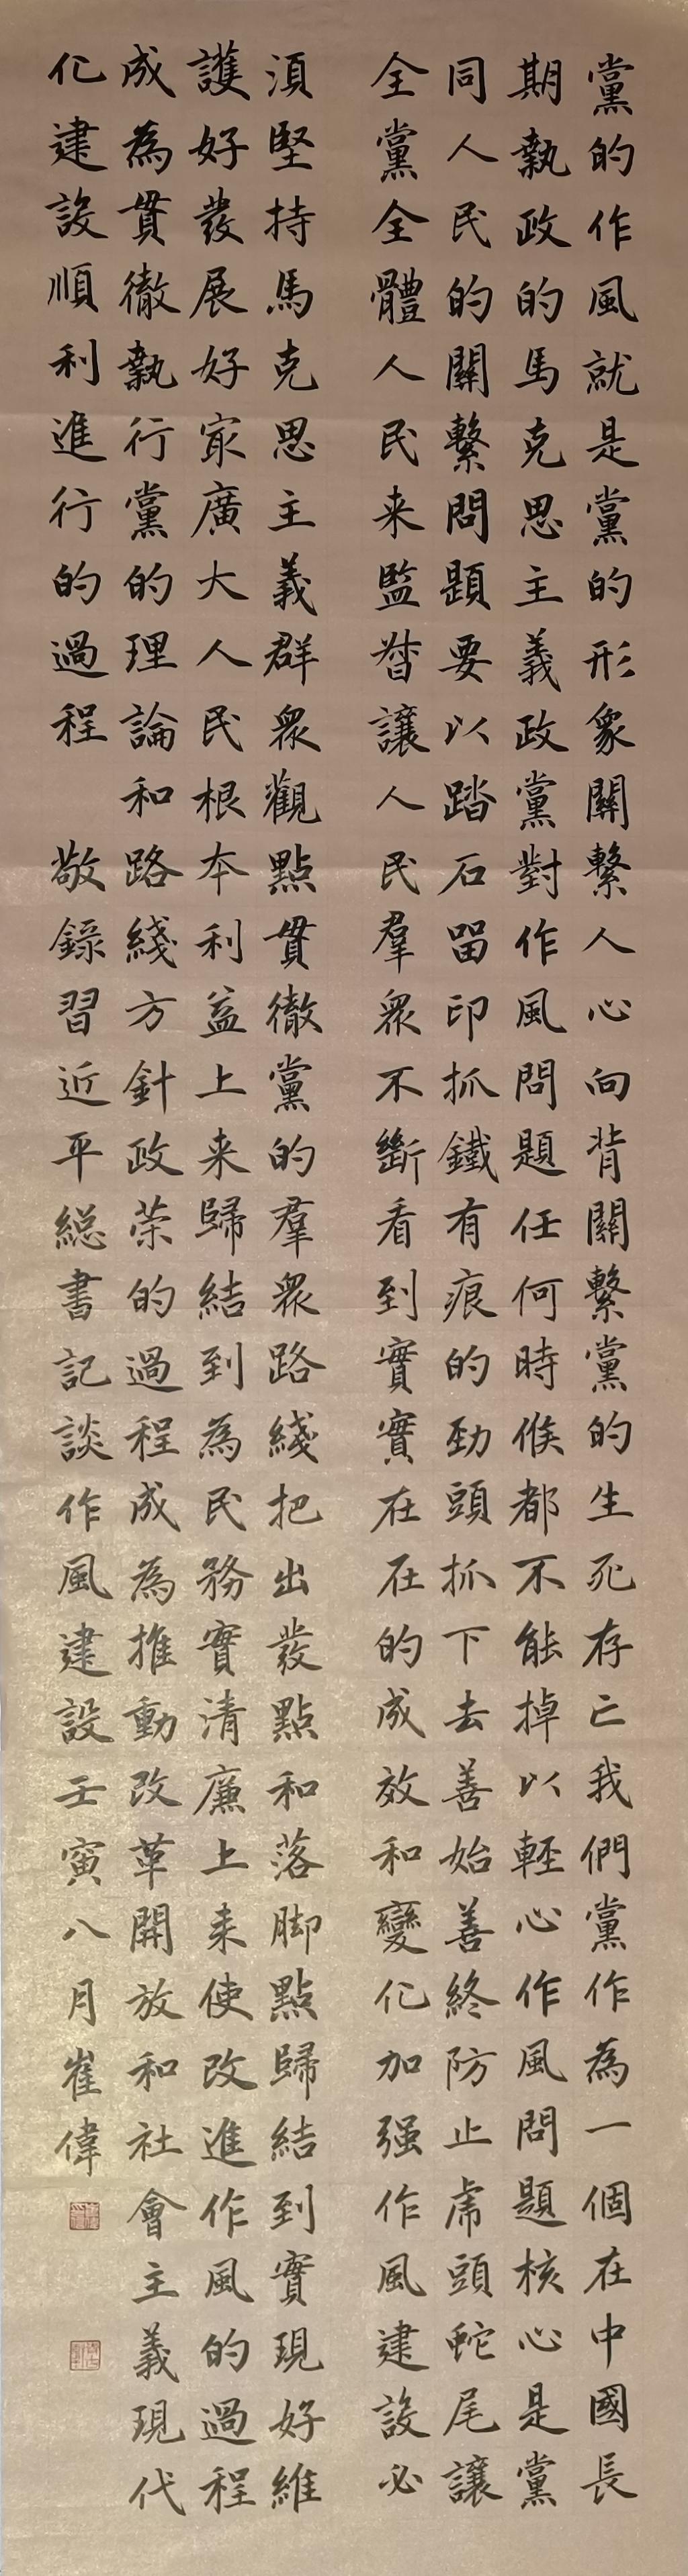 黨的作風就是黨的形象關繫人心向背關繫黨的生死存亡我們黨作為一個在中國長
期執政的馬克思主義政黨對作風問題任何時候都不能掉以輕心作風問題核心是黨
同人民的關繫問題要以踏石留印抓鐵有痕的勁頭抓下去善始善終防止虎頭蛇尾讓
全黨全體人民来監督讓人民羣衆不斷看到實實在在的成效和變化加强作風建設必
須堅持馬克思主義群衆觀點貫徹黨的羣衆路綫把出發點和落脚點歸結到實現好維
護好發展好寂廣大人民根本利益上来歸結到為民務實清廉上来使改進作風的過程
成為貫徹執行黨的理論和路綫方針政策的過程成為推動改革開放和社會主義現代
化建設順利進行的過程 敬錄習近平總書記談作風建設壬寅八月崔偉